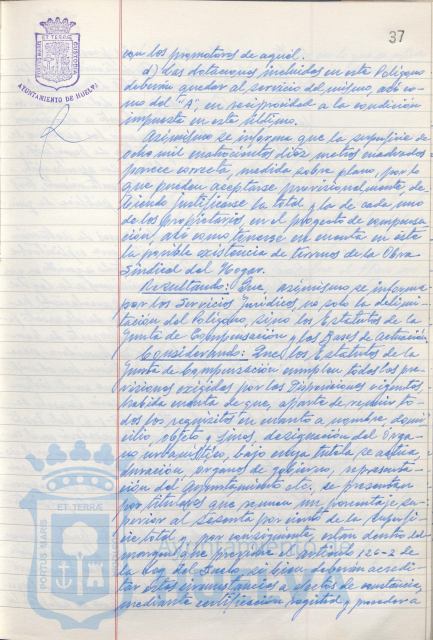 37
PORTUS MARIS ET TERRÆ CUSTODIA
AYUNTAMIENTO DE HUELVA
con los promotores de aquél.
d) Las dotaciones incluidas en este Polígono
deberán quedar al servicio del mismo, así co-
mo del "A", en reciprocidad a la condición
impuesta en este último.
Asimismo se informa que la superficie de
ocho mil cuatrocientos diez metros cuadrados
parece correcta, medida sobre plano, por lo
que pueden aceptarse provisionalmente, de-
biendo justificarse la total y la de cada uno
de los propietarios, en el proyecto de compensa-
ción, así como tenerse en cuenta en ésta
la posible existencia de terrenos de la Obra
Sindical del Hogar.
Resultando: Que, asimismo se informa
por los Servicios Jurídicos no solo la delimi-
tación del Polígono, sino los Estatutos de la
Junta de Compensación y las Bases de actuación.
Considerando: Que los Estatutos de la
Junta de Compensación cumplen todas las pre-
visiones exigidas por las Disposiciones vigentes,
habida cuenta de que, aparte de reunir to-
dos los requisitos en cuanto a nombre, domi-
cilio, objeto y fines, designación del Órga-
no urbanístico, bajo cuya tutela se actúa,
duración, órganos de gobierno, representa-
ción del Ayuntamiento etc. se presentan
por titulares que reunen un porcentaje su-
perior al sesenta por ciento de la superfi-
cie total y, por consiguiente, están dentro del
margen que previene el artículo 126-2 de
la Ley del Suelo, si bien deberán acredi-
tar estas circunstancias a efectos de constancia,
mediante certificación registral y proceder a
PORTUS MARIS ET TERRÆ